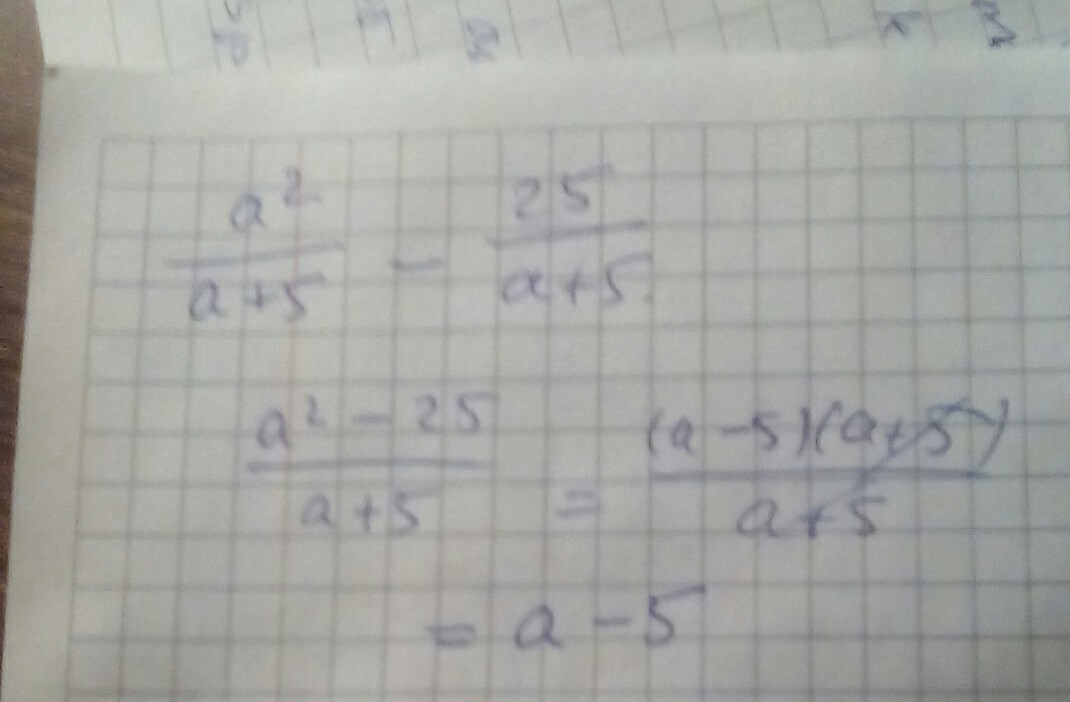 a²/(a+5) − 25/(a+5)
(a² − 25)/(a+5) = (a−5)(a+5)/(a+5)
= a − 5